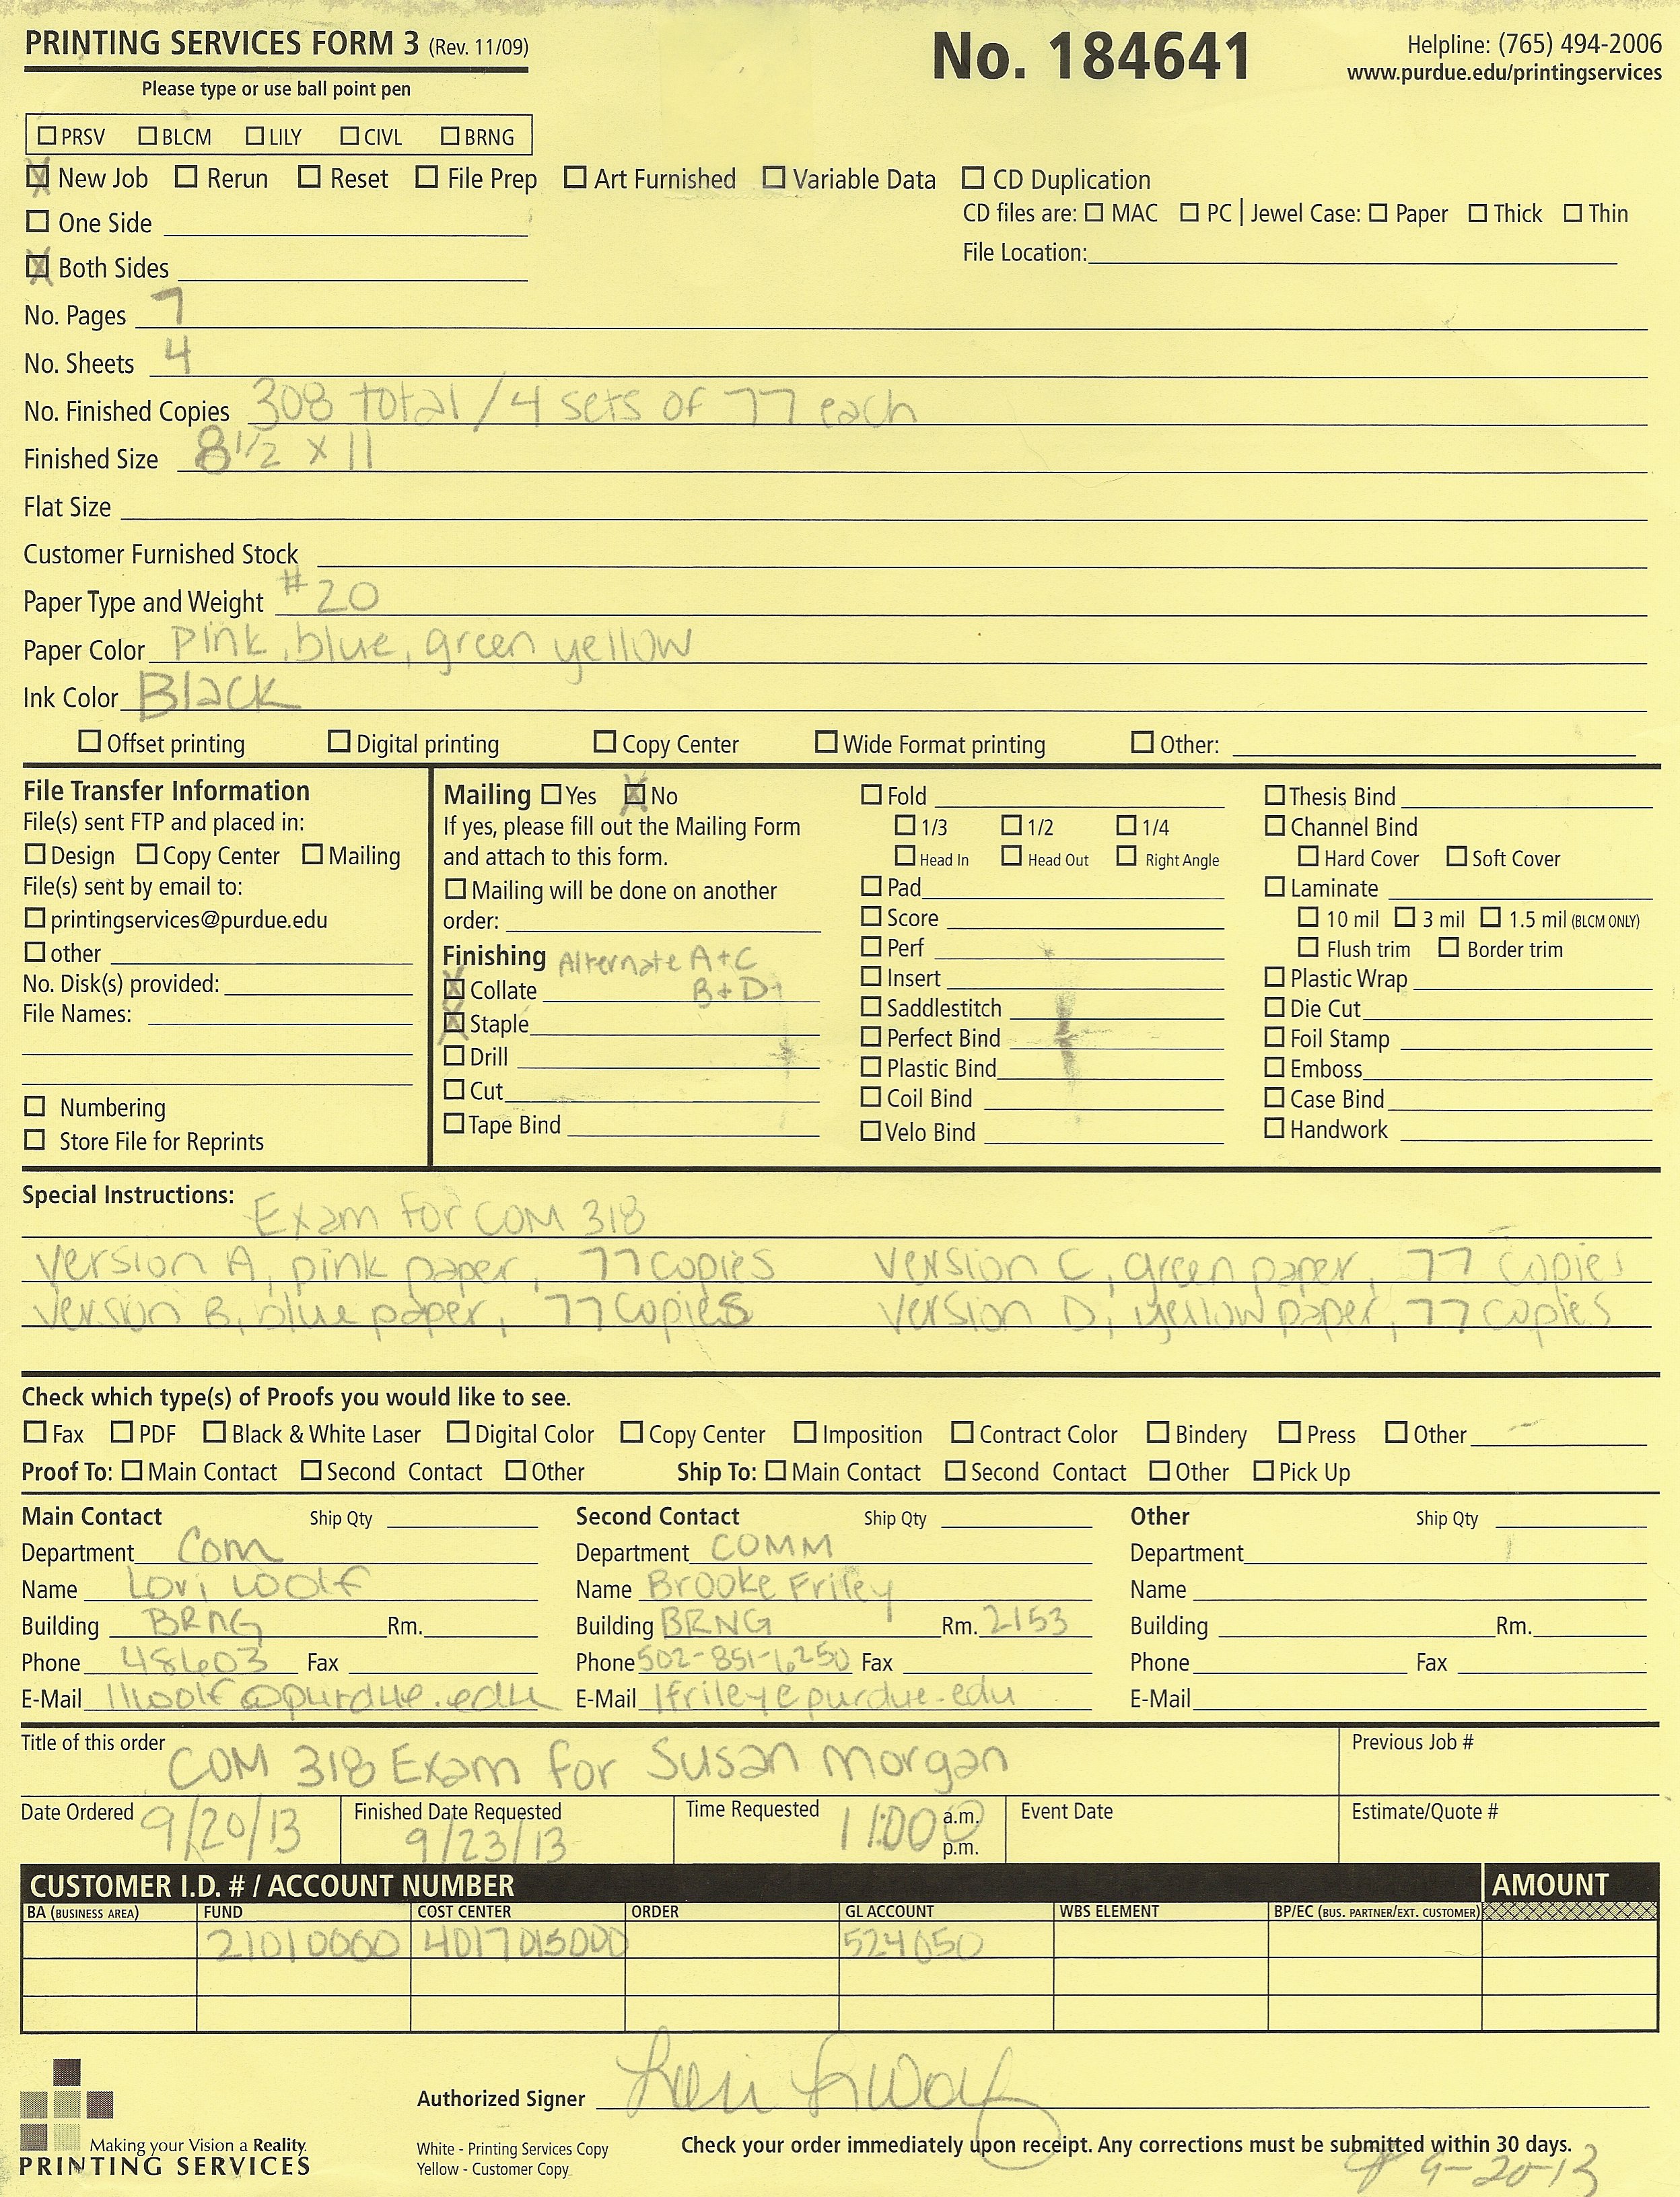 PRINTING SERVICES FORM 3 (Rev. 11/09)
No. 184641
Helpline: (765) 494-2006
www.purdue.edu/printingservices
Please type or use ball point pen
PRSV BLCM LILY CIVL BRNG
New Job Rerun Reset File Prep Art Furnished Variable Data CD Duplication
CD files are: MAC PC | Jewel Case: Paper Thick Thin
One Side
File Location:
Both Sides
No. Pages 7
No. Sheets 4
No. Finished Copies 308 total / 4 sets of 77 each
Finished Size 8 1/2 x 11
Flat Size
Customer Furnished Stock
Paper Type and Weight #20
Paper Color Pink, blue, green yellow
Ink Color Black
Offset printing Digital printing Copy Center Wide Format printing Other:
File Transfer Information
File(s) sent FTP and placed in:
Design Copy Center Mailing
File(s) sent by email to:
printingservices@purdue.edu
other
No. Disk(s) provided:
File Names:
Numbering
Store File for Reprints
Mailing Yes No
If yes, please fill out the Mailing Form
and attach to this form.
Mailing will be done on another
order:
Finishing Alternate A+C
Collate B+D
Staple
Drill
Cut
Tape Bind
Fold
1/3 1/2 1/4
Head In Head Out Right Angle
Pad
Score
Perf
Insert
Saddlestitch
Perfect Bind
Plastic Bind
Coil Bind
Velo Bind
Thesis Bind
Channel Bind
Hard Cover Soft Cover
Laminate
10 mil 3 mil 1.5 mil (BLCM ONLY)
Flush trim Border trim
Plastic Wrap
Die Cut
Foil Stamp
Emboss
Case Bind
Handwork
Special Instructions:
Exam for COM 318
Version A, pink paper, 77 copies Version C, green paper, 77 copies
Version B, blue paper, 77 copies Version D, yellow paper, 77 copies
Check which type(s) of Proofs you would like to see.
Fax PDF Black & White Laser Digital Color Copy Center Imposition Contract Color Bindery Press Other
Proof To: Main Contact Second Contact Other Ship To: Main Contact Second Contact Other Pick Up
Main Contact Ship Qty
Department Com
Name Lori Woolf
Building BRNG Rm.
Phone 48603 Fax
E-Mail llwolf@purdue.edu
Second Contact Ship Qty
Department COMM
Name Brooke Friley
Building BRNG Rm. 2153
Phone 502-851-6250 Fax
E-Mail lfriley@purdue.edu
Other Ship Qty
Department
Name
Building Rm.
Phone Fax
E-Mail
Title of this order COM 318 Exam for Susan Morgan
Previous Job #
Date Ordered 9/20/13 Finished Date Requested 9/23/13 Time Requested 11:00 a.m. p.m. Event Date Estimate/Quote #
CUSTOMER I.D. # / ACCOUNT NUMBER AMOUNT
BA (BUSINESS AREA) FUND COST CENTER ORDER GL ACCOUNT WBS ELEMENT BP/EC (BUS. PARTNER/EXT. CUSTOMER)
21010000 4017015000 524050
Authorized Signer
Making your Vision a Reality.
PRINTING SERVICES
White - Printing Services Copy
Yellow - Customer Copy
Check your order immediately upon receipt. Any corrections must be submitted within 30 days.
9-20-13